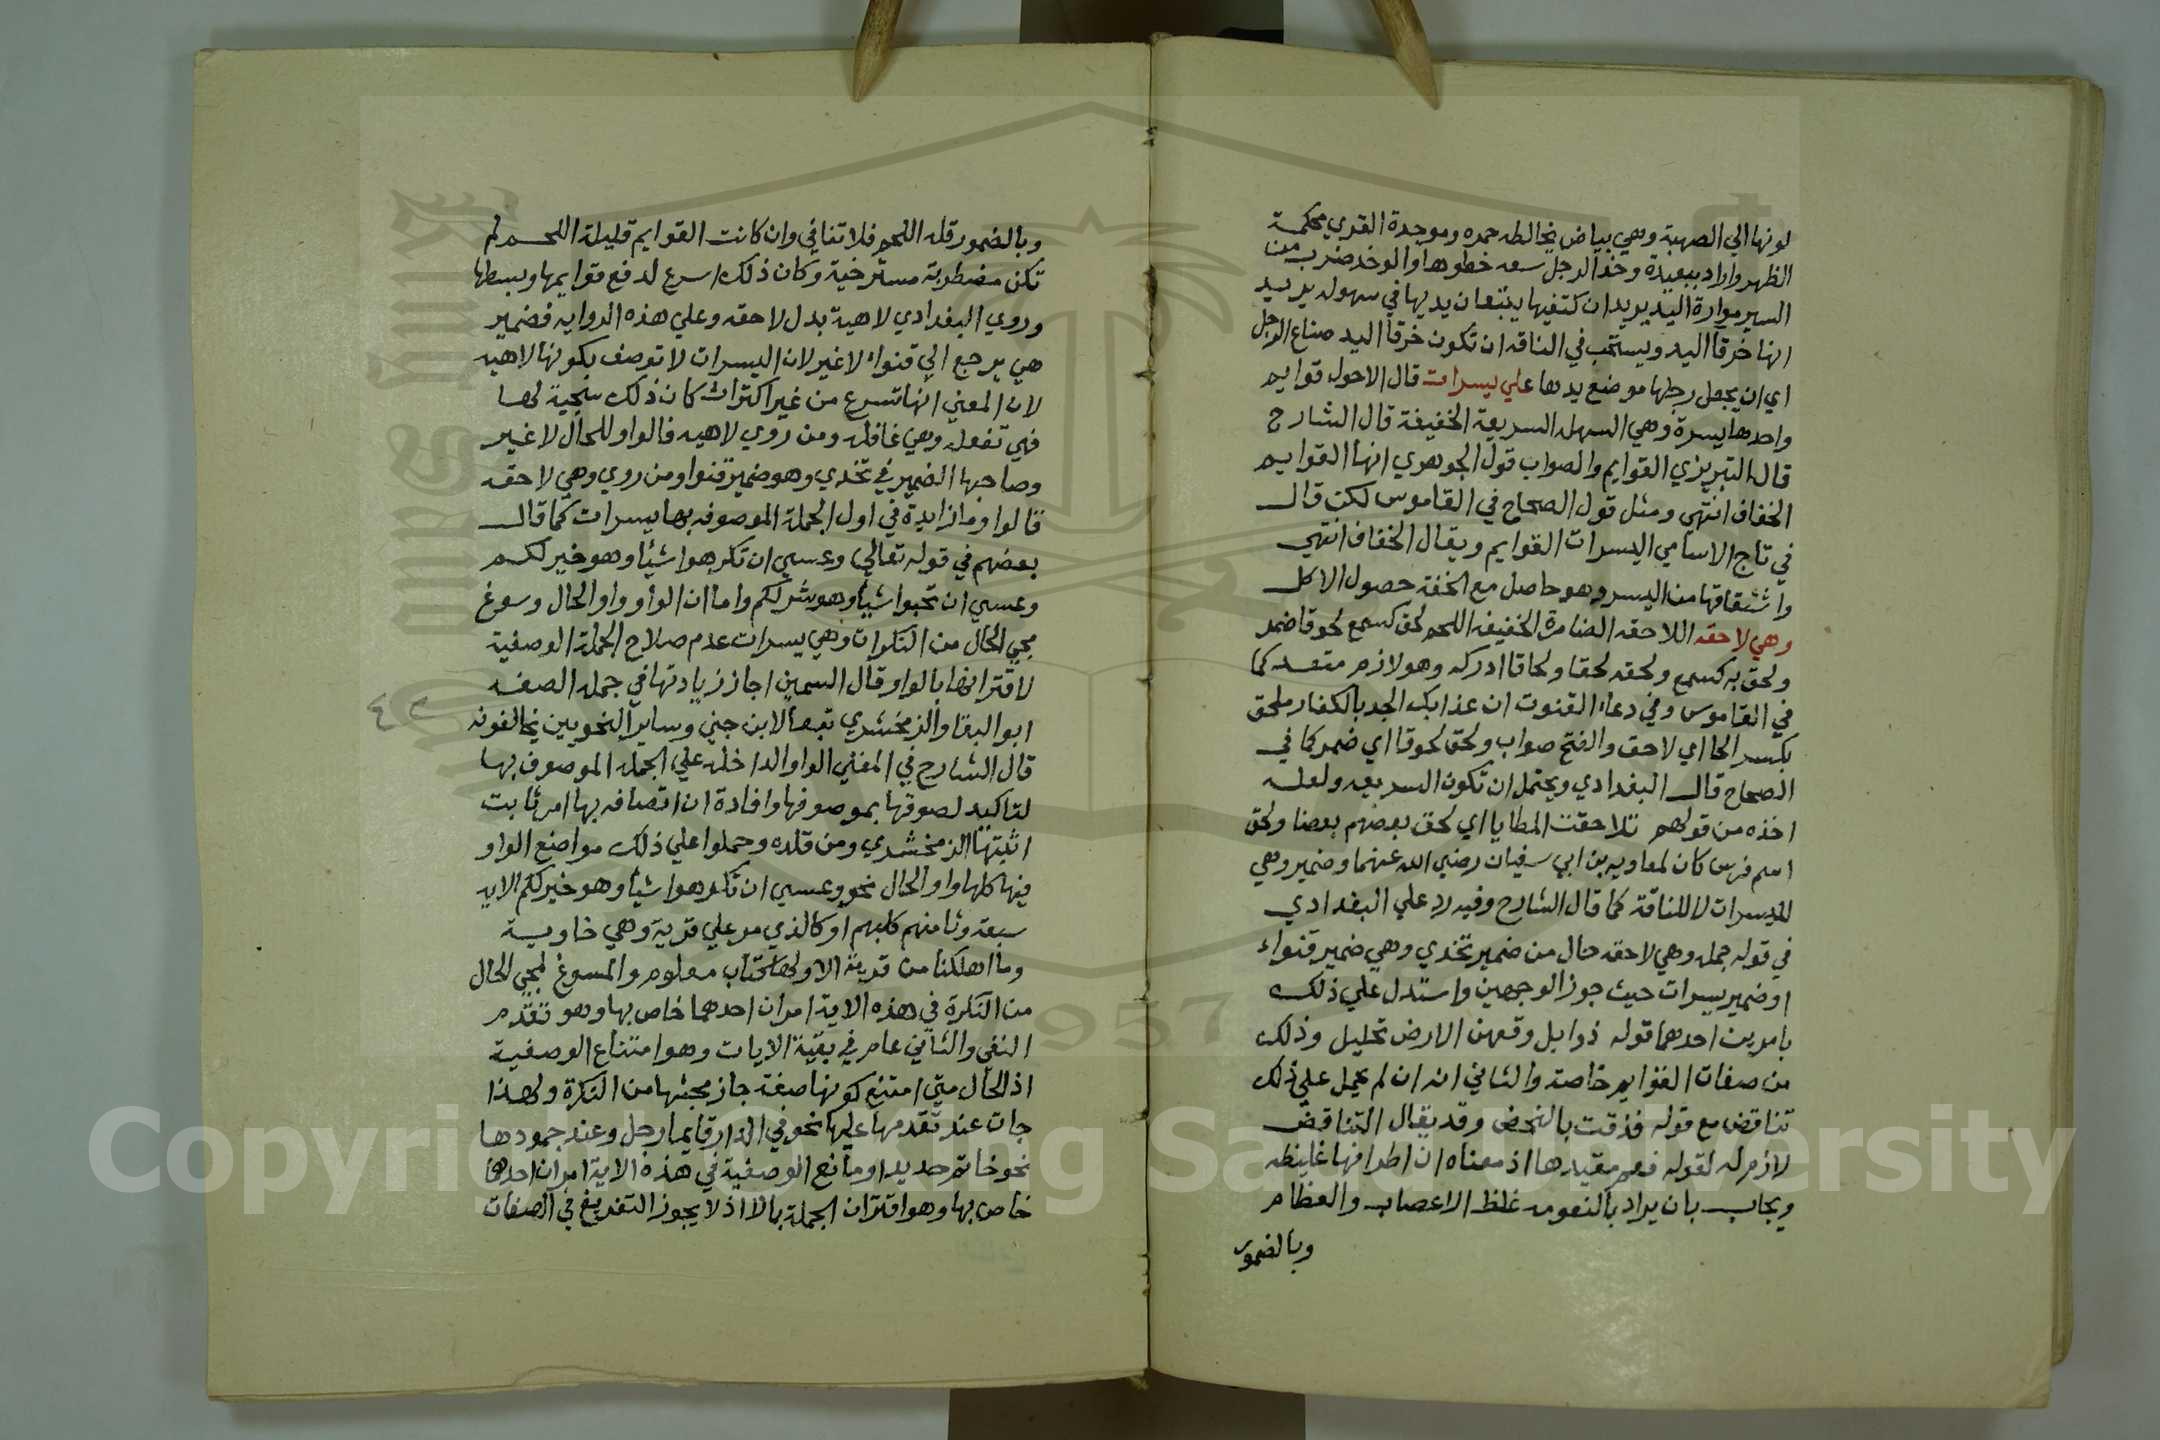 لونها الي الصهبة وهي بياض يخالطه حمره وموجدة القري محكمة
الظهر واراد ببعيدة وخد الرجل سعه خطوها والوخد ضرب من
السير موارة اليد يريد ان كتفيها يتبعان يديها في سهوله يريد
انها خرقا اليد ويستحب في الناقه ان تكون خرقا اليد صناع الرجل
اي ان يجعل رجلها موضع يدها علي يسرات قال الاحول قوايم
واحدها يسرة وهي السهله السريعه الخفيفة قال الشارح
قال التبريزي القوايم والصواب قول الجوهري انها القوايم
الخفاف انتهي ومثل قول الصحاح في القاموس لكن قال
في تاج الاسامي اليسرات القوايم ويقال الخفاف انتهي
واشتقاقها من اليسر وهو حاصل مع الخفة حصول الاكل
وهي لاحقه اللاحقه الضامرة الخفيفه اللحم لحق كسمع لحوقا ضمر
ولحق به كسمع ولحقه لحقا ولحاقا ادركه وهو لازم متعد كما
في القاموس وفي دعاء القنوت ان عذابك الجد بالكفار ملحق
بكسر الحا اي لاحق والفتح صواب ولحق لحوقا اي ضمر كما في
الصحاح قال البغدادي ويحتمل ان تكون السريعه ولعله
اخذه من قولهم تلاحقت المطايا اي لحق بعضهم بعضا ولحق
اسم فرس كان لمعاويه بن ابي سفيان رضي الله عنهما وضمير وهي
لليسرات لا للناقة كما قال الشارح وفيه رد علي البغدادي
في قوله جمله وهي لاحقه حال من ضمير تخدي وهي ضمير قنواء
او ضمير يسرات حيث جوز الوجهين واستدل علي ذلك
بامرين احدهما قوله ذوابل وقعهن الارض تحليل وذلك
من صفات القوايم خاصه والثاني انه ان لم يحمل علي ذلك
تناقض مع قوله قذفت بالنحض وقد يقال التناقض
لازم له لقوله فعم مقيدها اذ معناه ان اطرافها غليظه
ويجاب بان يراد بالفعومه غلظ الاعصاب والعظام
وبالضمور
وبالضمور قله اللحم فلا تنافي وان كانت القوايم قليلة اللحم لم
تكن مضطربة مسترخية وكان ذلك اسرع لدفع قوايمها وبسطها
وروي البغدادي لاهية بدل لاحقه وعلي هذه الروايه فضمير
هي يرجع الي قنواء لا غير لان اليسرات لا توصف بكونها لاهيه
لان المعني انها تسرع من غير اكتراث كان ذلك سجية لها
فهي تفعله وهي غافله ومن روي لاهيه فالواو للحال لا غير
وصاحبها الضمير في تخدي وهو ضمير قنوا ومن روي وهي لاحقه
قالوا وما زايدة في اول الجملة الموصوفه بها يسرات كما قال
بعضهم في قوله تعالي وعسي ان تكرهوا شيأ وهو خير لكم
وعسي ان تحبوا شيأ وهو شر لكم واما ان الواو واو الحال وسوغ
مجي الحال من النكرات وهي يسرات عدم صلاح الجملة الوصفية
لاقترانها بالواو وقال السمين اجاز زيادتها في جمله الصفه
ابو البقا والزمخشري تبعا لابن جني وساير النحويين يخالفونه
قال الشارح في المغني الواو الداخله علي الجمله الموصوف بها
لتاكيد لصوقها بموصوفها وافادة ان اتصافه بها امر ثابت
اثبتها الزمخشري ومن قلده وحملوا علي ذلك مواضع الواو
فيها كلها واو الحال نحو وعسي ان تكرهوا شيأ وهو خير لكم الايه
سبعة وثامنهم كلبهم او كالذي مر علي قرية وهي خاوية
وما اهلكنا من قرية الا ولها كتاب معلوم والمسوغ لمجي الحال
من النكرة في هذه الاية امران احدهما خاص بها وهو تقدم
النفي والثاني عام في بقية الايات وهو امتناع الوصفية
اذ الحال متي امتنع كونها صفة جاز مجئها من النكرة ولهذا
جات عند تقدمها عليها نحو في الدار قايما رجل وعند جمودها
نحو خاتم حديدا ومانع الوصفية في هذه الاية امران احدهما
خاص بها وهو اقتران الجملة بالا اذ لا يجوز التفريغ في الصفات
٤٣
1957
Copyright © King Saud University